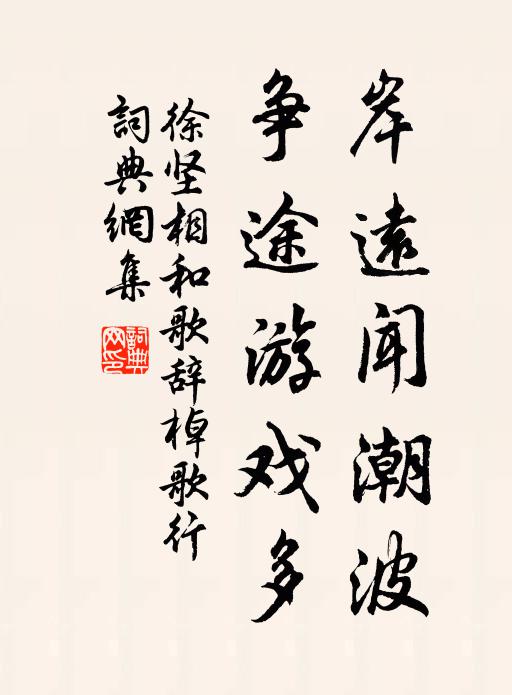 岸遠闻潮波
争途游戏多
徐坚相和歌辞棹歌行
詞典網集
詞典
网印